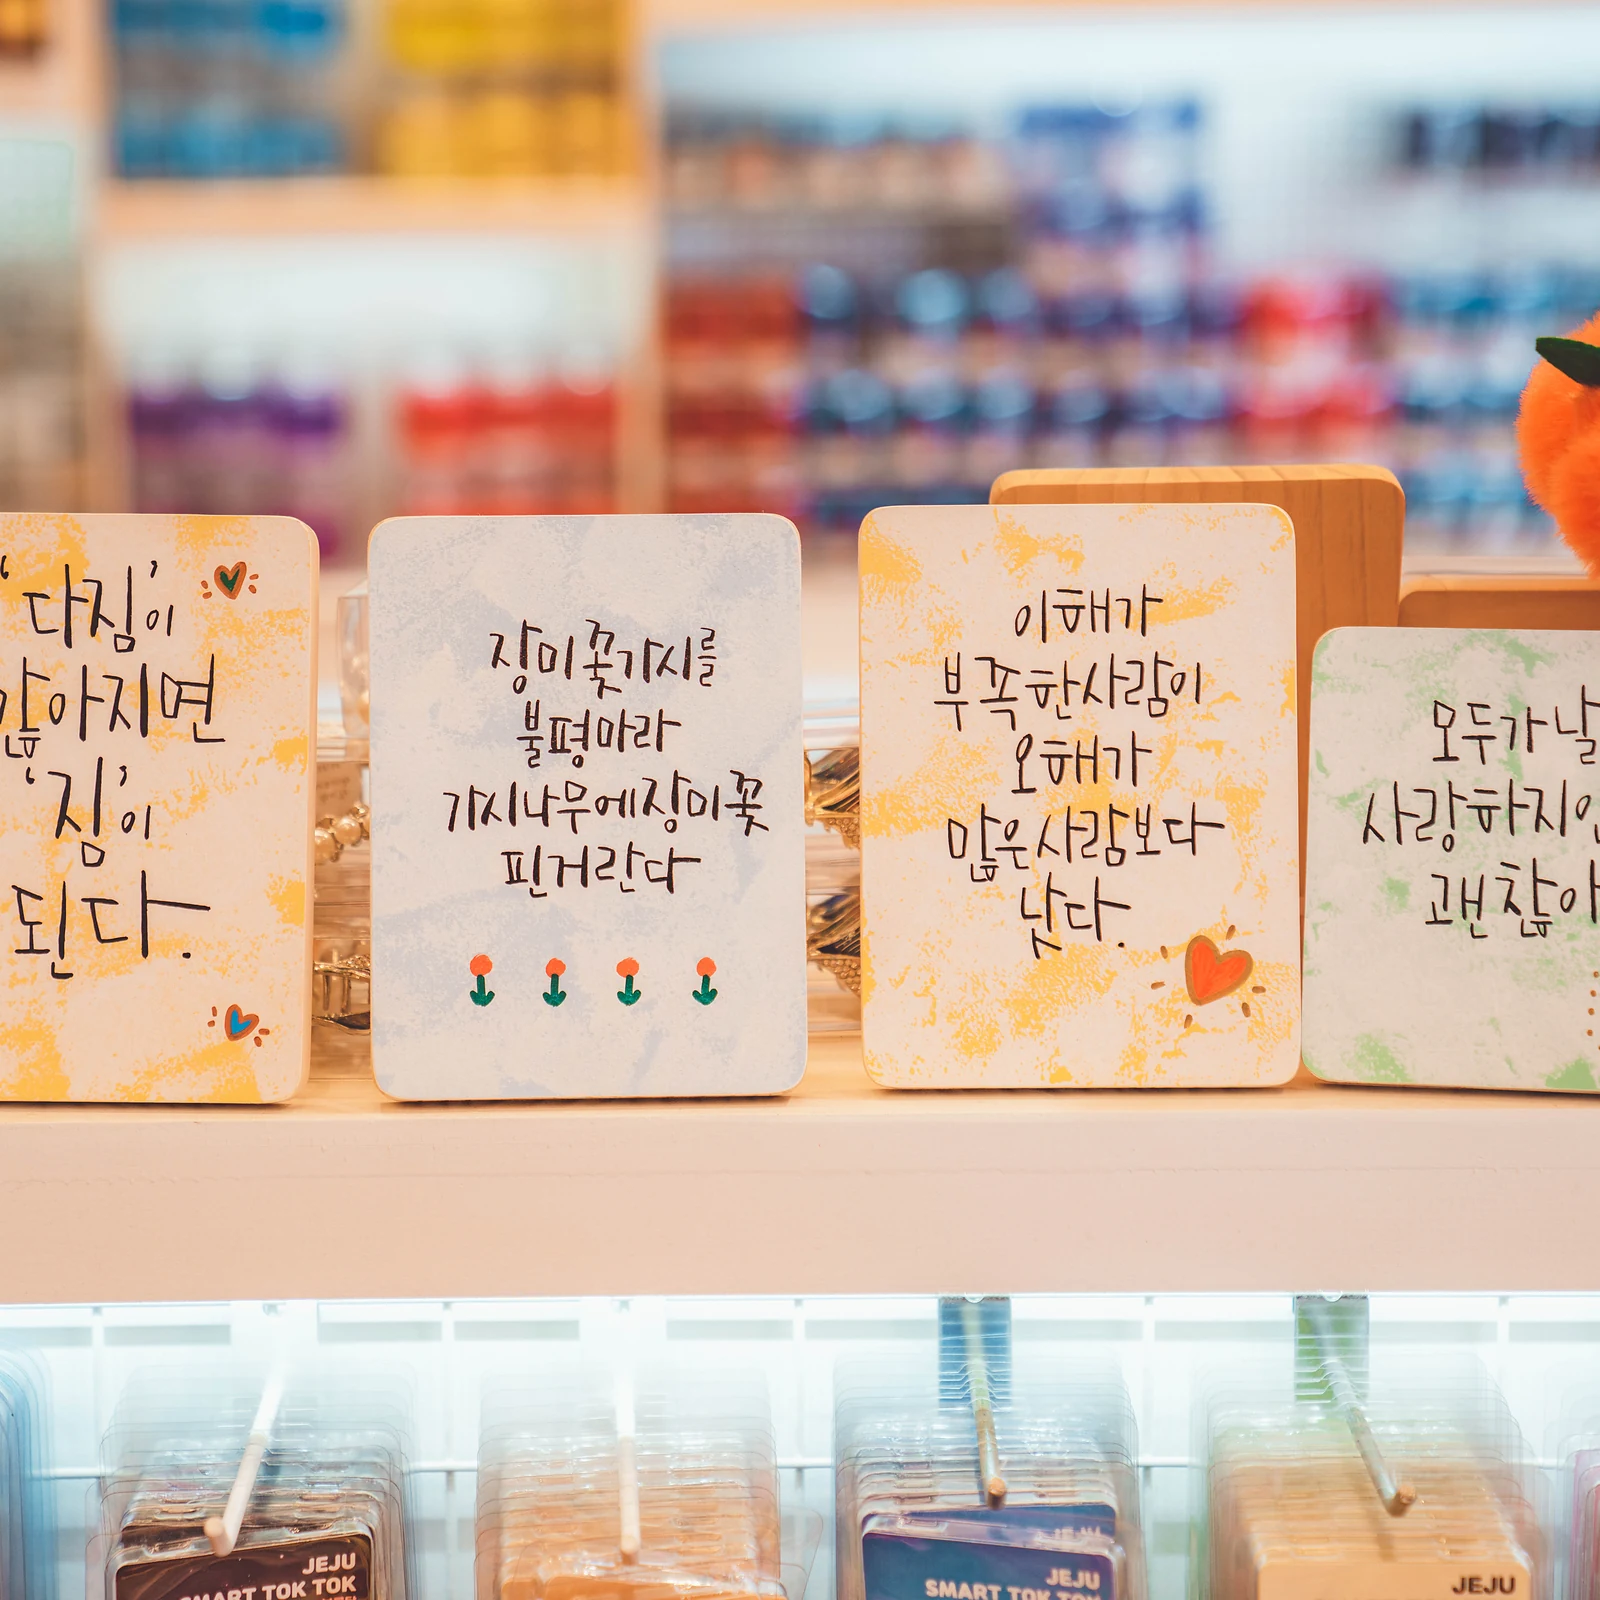 '다짐'이
많아지면
'짐'이
된다.
장미꽃가시를
불평마라
가시나무에장미꽃
핀거란다
이해가
부족한사람이
오해가
많은사람보다
낫다.
모두가날
사랑하지
괜찮아
JEJU
SMART TOK TOK
JEJU
SMART TOK TOK
JEJU